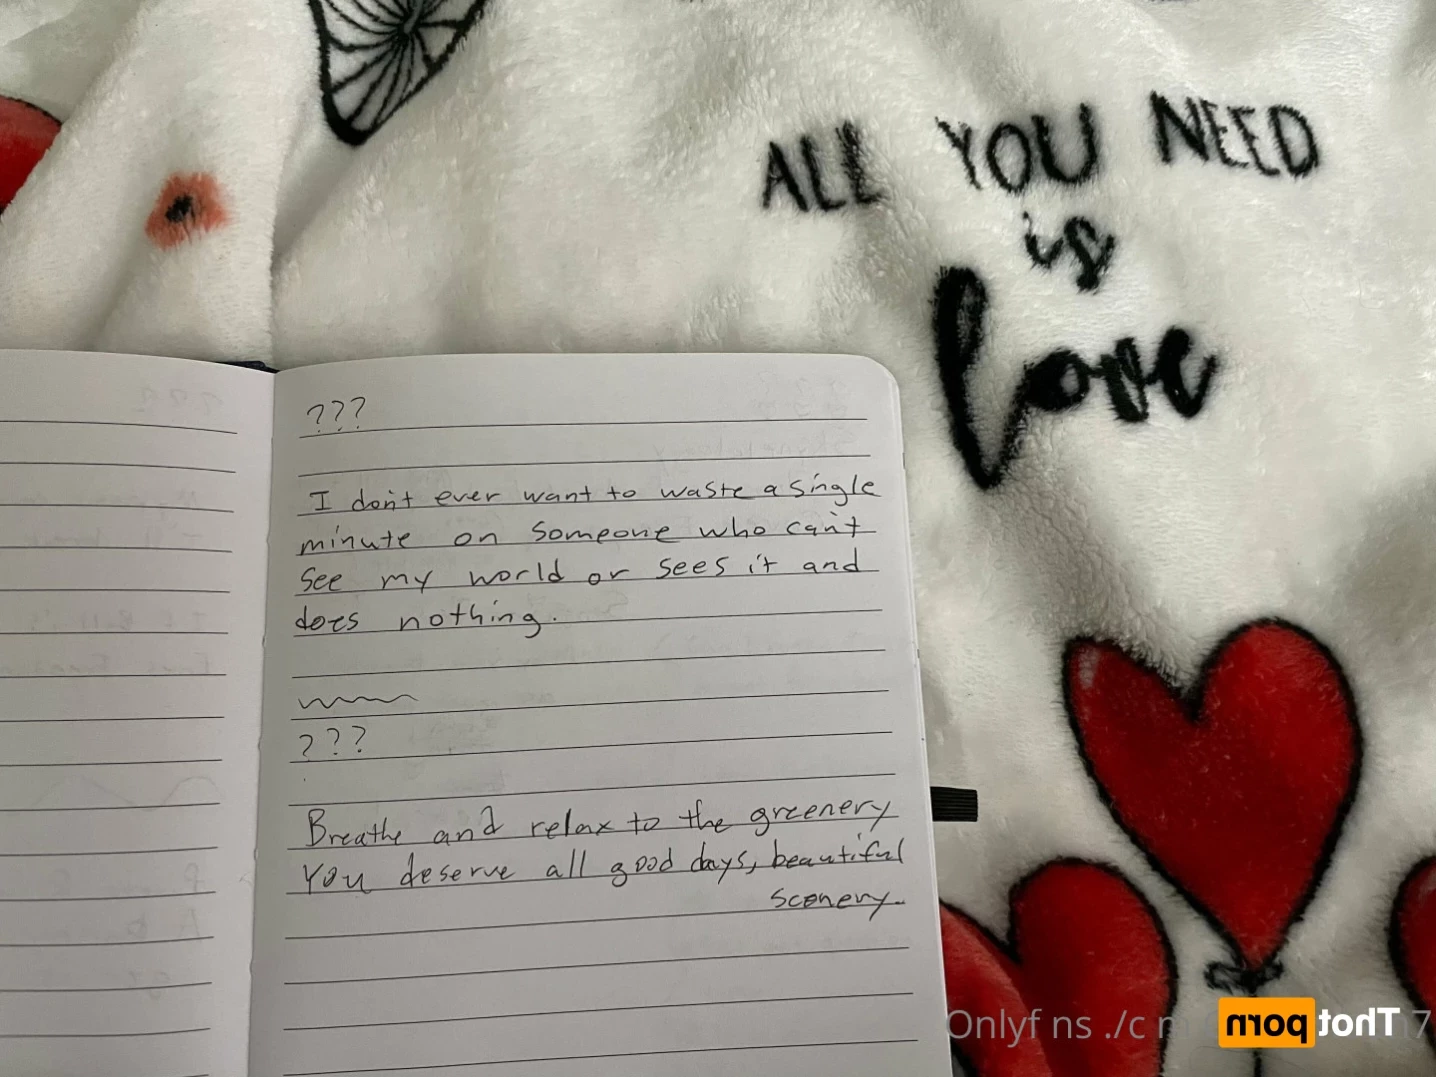 ALL YOU NEED
is
love
???
I don't ever want to waste a single
minute on someone who can't
see my world or sees it and
does nothing.
???
Breathe and relax to the greenery
You deserve all good days, beautiful
scenery.
Thot porn